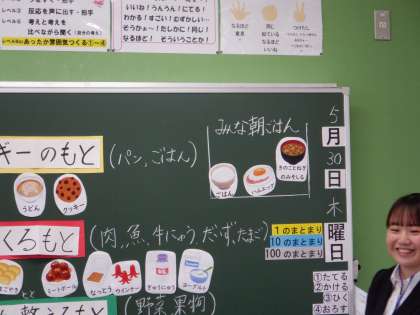 反応を声に出す・拍手
考えと考えを
比べながら聞く(自分の考え)
あったか雰囲気つくる①~④
いいね!うんうん!にてる!
わかる!すごい!むずかしい…
そうかぁ~たしかに!同じ!
なるほど! そういうことか!
なるほど
意見
同じ
似ている
なるほど
つけたし
ギーのもと
(パン、ごはん)
うどん
クッキー
みんな朝ごはん
ごはん
ハムエッグ
きのことねぎ
のみそしる
くるもと
(肉、魚、牛にゅう、だいず、たまご)
ミートボール
なっとう
ウインナー
ぎゅうにゅう
ヨーグルト
(野菜、果物)
5
月
30
日
木
曜
日
1のまとまり
10のまとまり
100のまとまり
①たてる
②かける
③ひく
④おろす